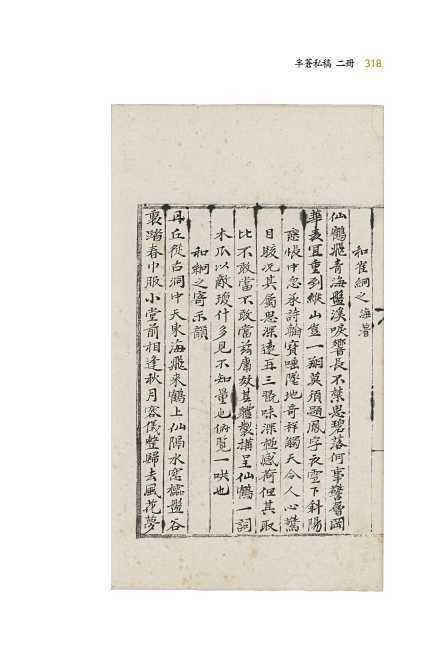 半蒼私稿 二冊 318
和崔絅之 海著
仙鶴飛青海盤溪唳響長不禁思碧落何事驚層岡
華表宜重到緱山豈一翔莫須題鳳字夜雪下斜陽
病悵中忽承詩翰寶唾墜地奇釋觸天令人心驚
目駭况其屬思深遠再三玩味深極感荷但其取
比不敢當不敢當茲庸效其體製構呈仙鶴一詞
木瓜以敵瓊什多見不知量也俯覽一哄也
和絅之寄示韻
丹丘從古洞中天東海飛來鶴上仙陽水窓 盤谷
裏踏春巾服小堂前相逢秋月容儀整歸去風花夢